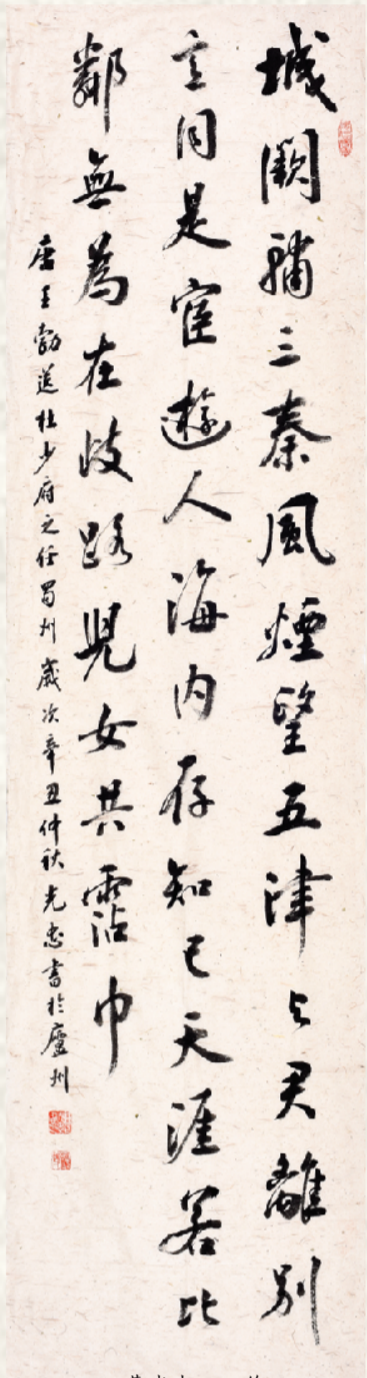 城闕輔三秦風煙望五津与君離別
意同是宦遊人海内存知己天涯若比
鄰無為在歧路児女共霑巾
唐王勃送杜少府之任蜀州歲次辛丑仲秋光忠書於廬州